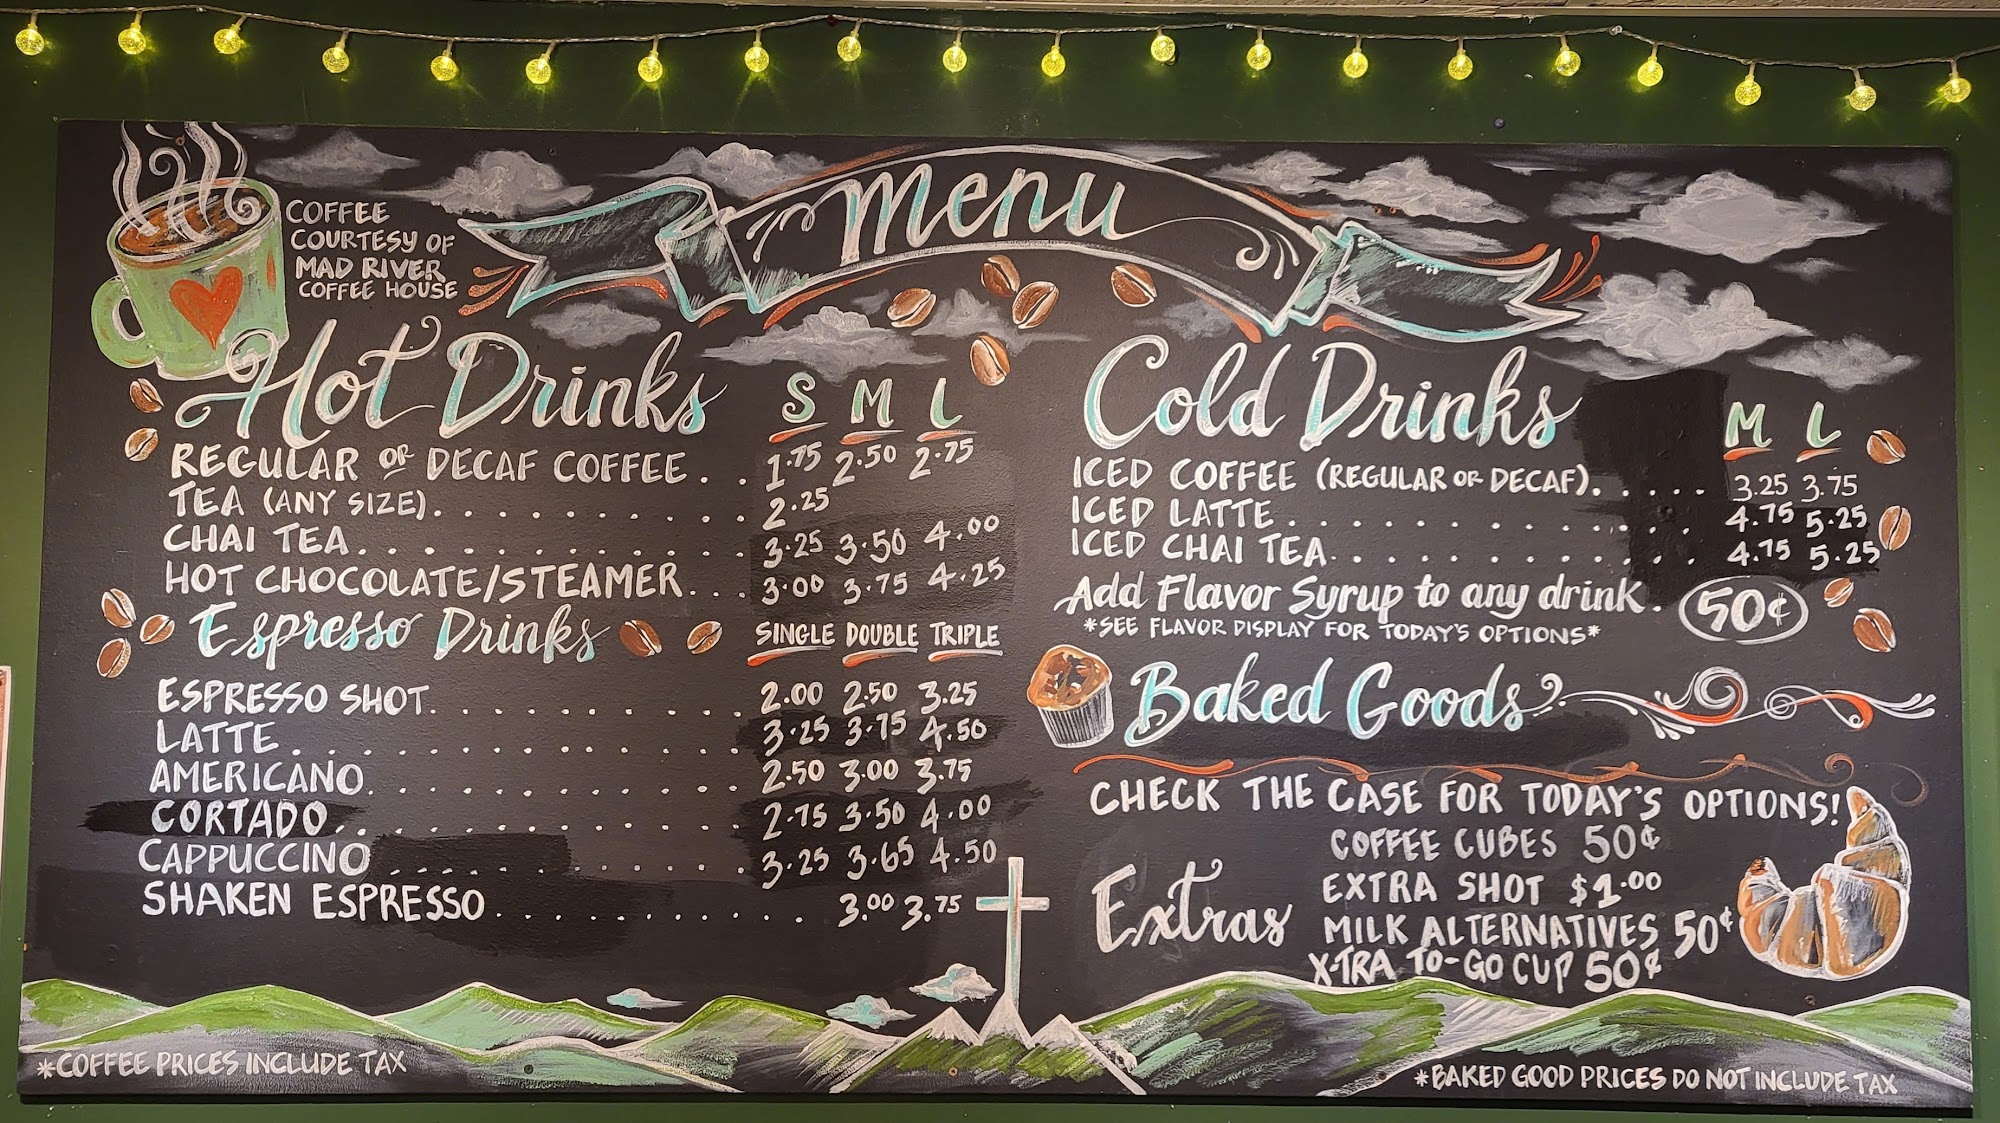 Menu
COFFEE
COURTESY OF
MAD RIVER
COFFEE HOUSE
Hot Drinks S M L
REGULAR OR DECAF COFFEE . . 1.75 2.50 2.75
TEA (ANY SIZE) . . . . . . . . . . 2.25
CHAI TEA . . . . . . . . . . . . 3.25 3.50 4.00
HOT CHOCOLATE/STEAMER . . . 3.00 3.75 4.25
Espresso Drinks SINGLE DOUBLE TRIPLE
ESPRESSO SHOT . . . . . . . . . . 2.00 2.50 3.25
LATTE . . . . . . . . . . . . . . . 3.25 3.75 4.50
AMERICANO . . . . . . . . . . . . 2.50 3.00 3.75
CORTADO . . . . . . . . . . . . . 2.75 3.50 4.00
CAPPUCCINO . . . . . . . . . . . . 3.25 3.65 4.50
SHAKEN ESPRESSO . . . . . . . . . . . . 3.00 3.75
*COFFEE PRICES INCLUDE TAX
Cold Drinks M L
ICED COFFEE (REGULAR OR DECAF) . . . . . 3.25 3.75
ICED LATTE . . . . . . . . . . . . . . 4.75 5.25
ICED CHAI TEA . . . . . . . . . . . . 4.75 5.25
Add Flavor Syrup to any drink . 50¢
*SEE FLAVOR DISPLAY FOR TODAY'S OPTIONS*
Baked Goods
CHECK THE CASE FOR TODAY'S OPTIONS!
Extras
COFFEE CUBES 50¢
EXTRA SHOT $1.00
MILK ALTERNATIVES 50¢
X-TRA TO-GO CUP 50¢
*BAKED GOOD PRICES DO NOT INCLUDE TAX